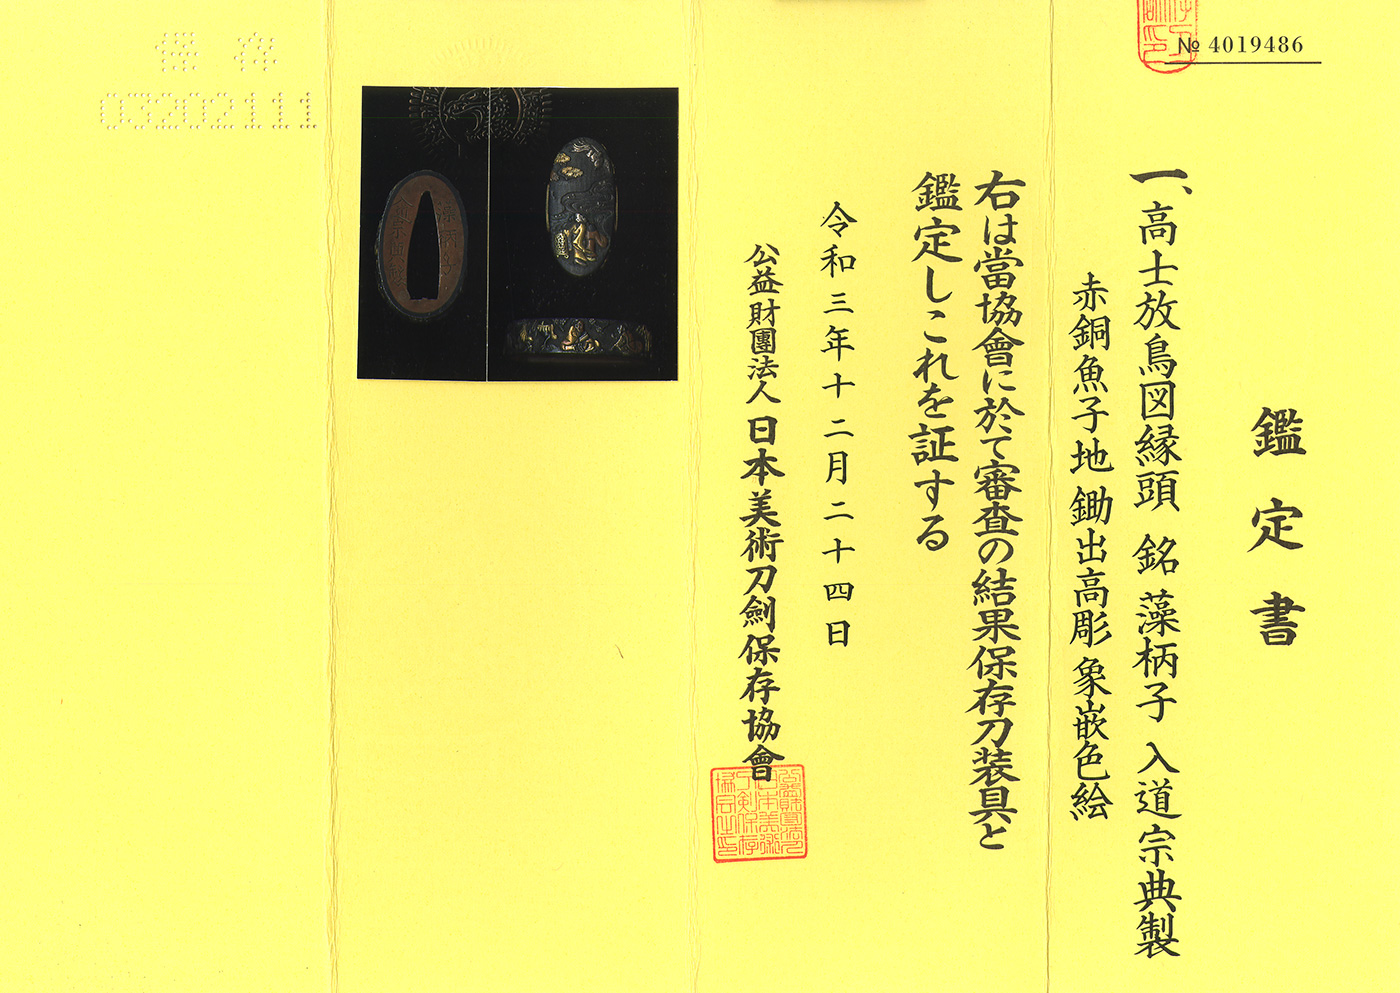 № 4019486
鑑定書
一、高士放鳥図縁頭 銘 藻柄子 入道宗典製
赤銅魚子地 鋤出高彫 象嵌色絵
右は當協會に於て審査の結果保存刀装具と
鑑定しこれを証する
令和三年十二月二十四日
公益財團法人 日本美術刀劍保存協會
保存
03202111